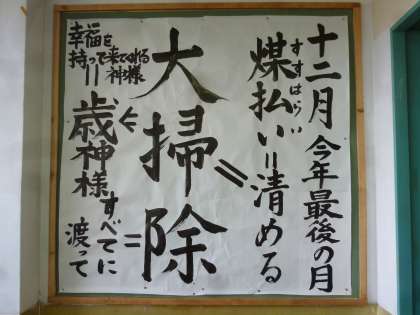 十二月 今年最後の月
煤払い=清める
すすはらい
大掃除
歳神様 すべてに
渡って
幸福を
持って来てくれる
神様